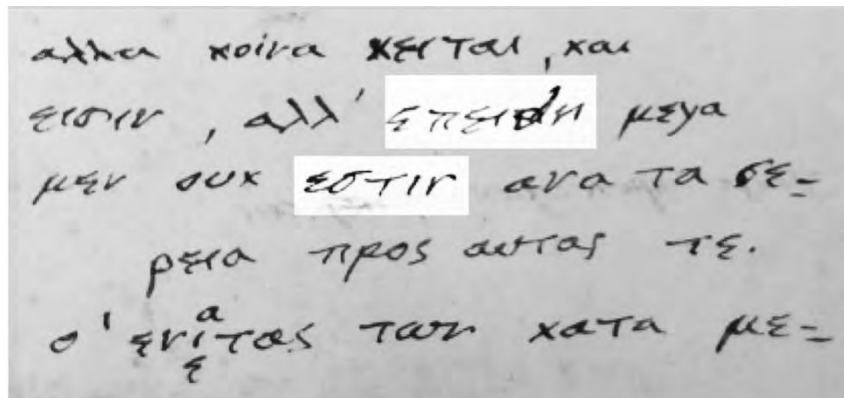 αλλα κοινα κειται, και
εισιν, αλλ' επειδη μεγα
μεν ουχ εστιν ανα τα σε=
ρεια προς αυτας τε.
τας των κατα με=